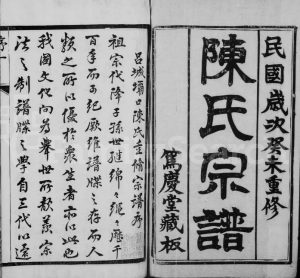 民國歲次癸未重修
陳氏宗譜
篤慶堂藏板
呂城壩口陳氏重脩宗譜序
祖宗代降子孫世繼綿々繩々歷千
百年而可紀厥維譜牒之存而人
類之所以優於衆生者亦以此也
我國文化向為舉世所歆羨宗
法之制譜牒之學自三代以逮
序一